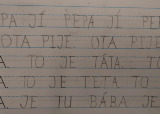 PA JÍ PEPA JÍ PE
OTA PIJE. OTA PIJE
A. TO JE TÁTA. TO
A. TO JE TETA. TO J
A JE TU BÁBA JE